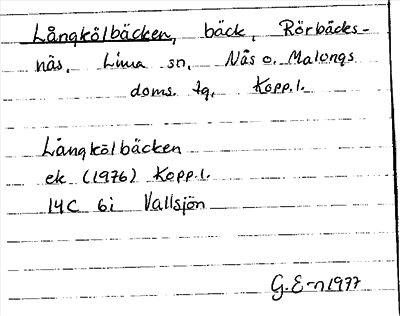 Långkölbäcken, bäck, Rörbäcks-
näs, Lima sn, Nås o. Malungs
doms. tg, Kopp.l.
Långkölbäcken
ek (1976) Kopp.l.
14C 6i Vallsjön
G.E-n 1977